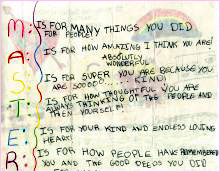 M: IS FOR MANY THINGS YOU DID
FOR PEOPLE!
A: IS FOR HOW AMAZING I THINK YOU ARE!
ABSOLUTELY
WONDERFUL
S: IS FOR SUPER YOU ARE BECAUSE YOU
ARE SOOOOO... KIND!
T: IS FOR HOW THOUGHTFUL YOU ARE
ALWAYS THINKING OF THE PEOPLE AND
THEN YOURSELF!
E: IS FOR YOUR KIND AND ENDLESS LOVING
HEART!
R: IS FOR HOW PEOPLE HAVE REMEMBERED
YOU AND THE GOOD DEEDS YOU DID